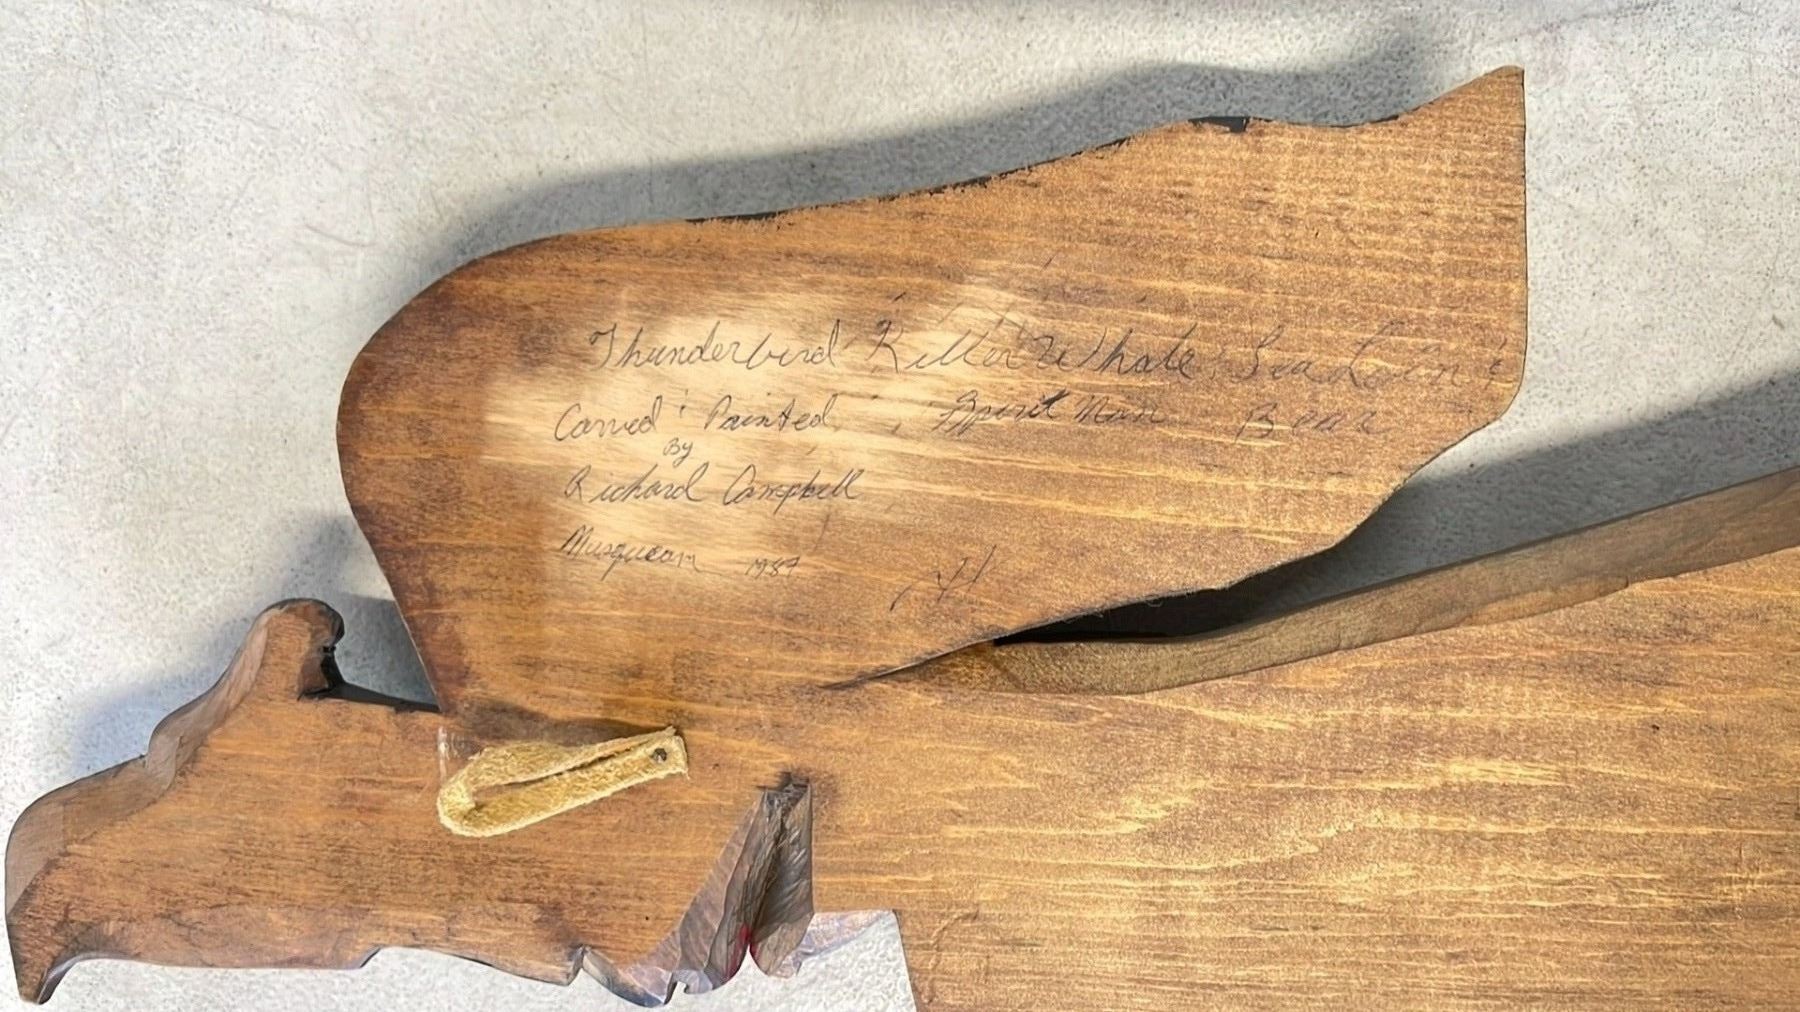 Thunderbird Killer Whale Sea Loin &
Carved & Painted, Spirit Man Bear
By
Richard Campbell
Musqueam 1987